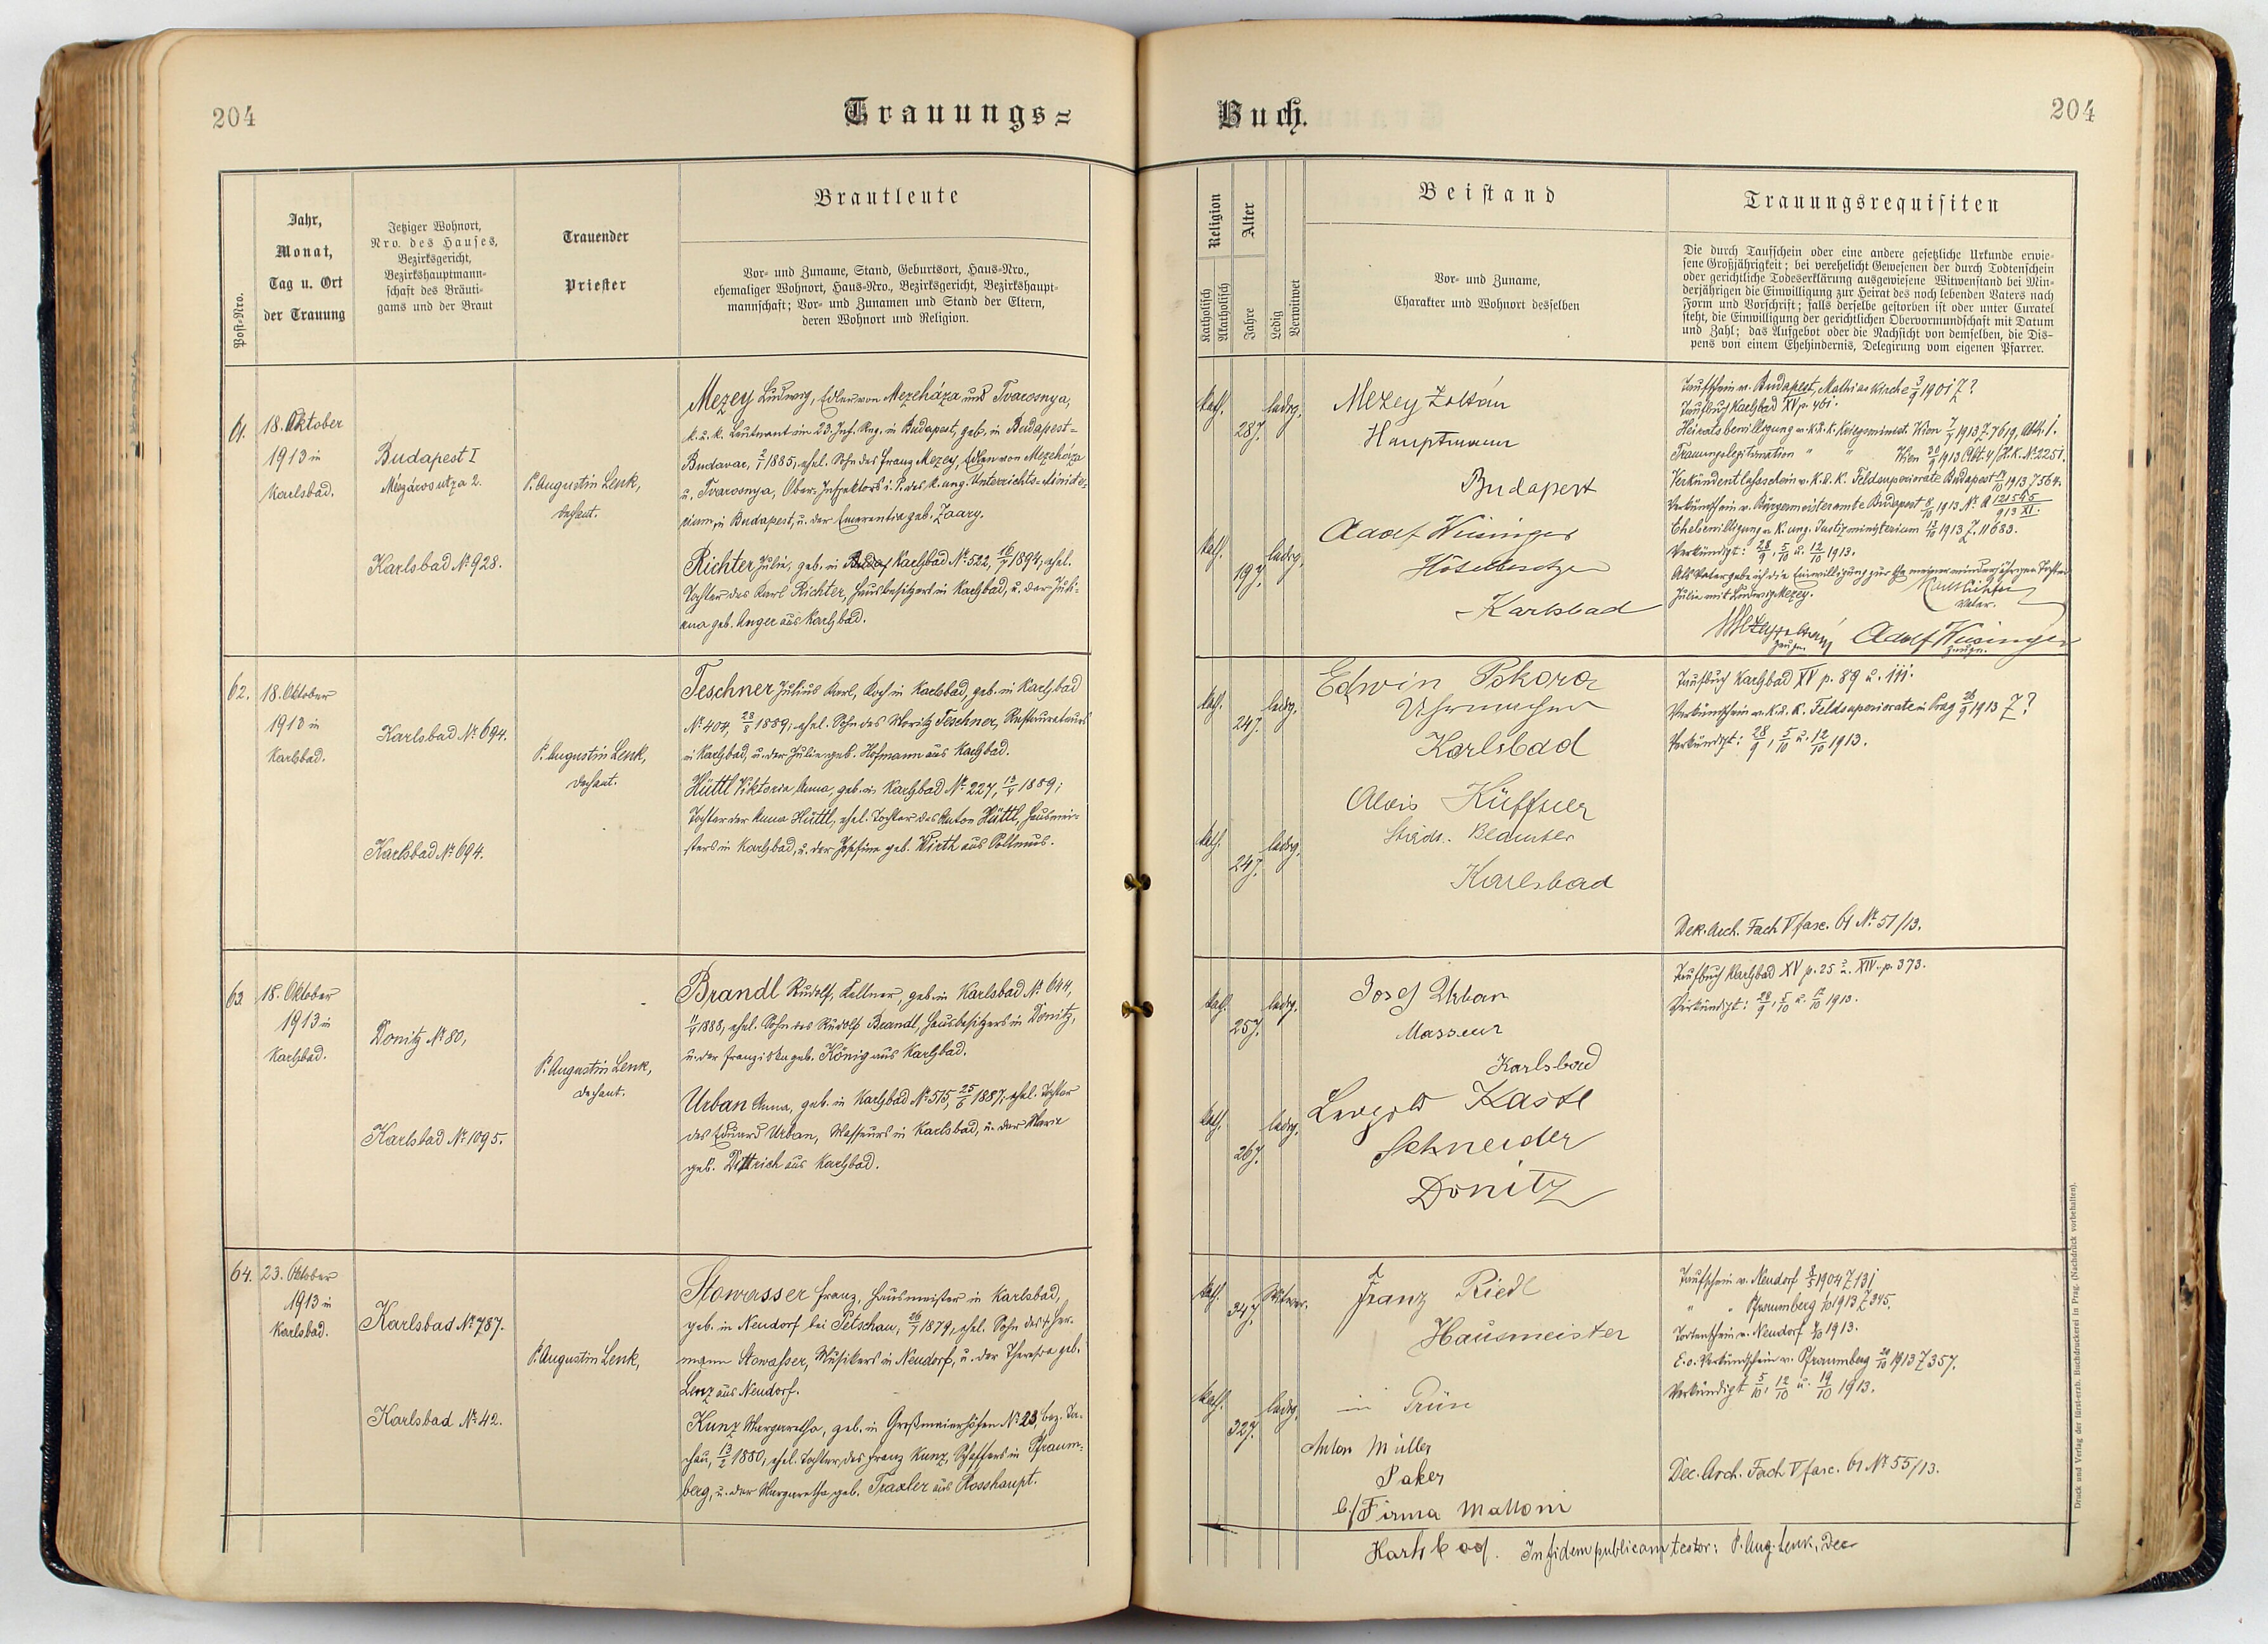 204
Trauungs=
Post-Nro.
Jahr,
Monat,
Tag u. Ort
der Trauung
Jetziger Wohnort,
Nro. des Hauses,
Bezirksgericht,
Bezirkshauptmann-
schaft des Bräuti-
gams und der Braut
Trauender
Priester
Brautleute
Vor- und Zuname, Stand, Geburtsort, Haus-Nro.,
ehemaliger Wohnort, Haus-Nro., Bezirksgericht, Bezirkshaupt-
mannschaft; Vor- und Zunamen und Stand der Eltern,
deren Wohnort und Religion.
61.
18. Oktober
1913 in
Karlsbad.
Budapest I
Mészáros utza 2.
Karlsbad № 928.
P. Augustin Lenk,
Dechant.
Mezey Ludwig, Edler von Mezeháza und Tvarosnya,
k. u. k. Leutnant im 23. Inf. Reg. in Budapest, geb. in Budapest-
Budavar, 2/1 1885, ehel. Sohn des Franz Mezey, Edlen von Mezeháza
u. Tvarosnya, Ober-Inspektors i. P. des k. ung. Unterrichts-Ministe-
riums in Budapest, u. der Emerentia geb. Zaary.
Richter Julie, geb. in Karlsbad № 522, 16/7 1894, ehel.
Tochter des Karl Richter, Hausbesitzers in Karlsbad, u. der Juli-
ana geb. Anger aus Karlsbad.
62.
18. Oktober
1913 in
Karlsbad.
Karlsbad № 694.
Karlsbad № 694.
P. Augustin Lenk,
Dechant.
Teschner Julius Karl, Koch in Karlsbad, geb. in Karlsbad
№ 404, 23/3 1889; ehel. Sohn des Moritz Teschner, Restaurateurs
in Karlsbad, u. der Julie geb. Hofmann aus Karlsbad.
Hüttl Viktoria Anna, geb. in Karlsbad № 227, 1889;
Tochter der Anna Hüttl, ehel. Tochter des Anton Hüttl, Hausmei-
sters in Karlsbad, u. der Josefine geb. Wirth aus
63.
18. Oktober
1913 in
Karlsbad.
Donitz № 80,
Karlsbad № 1095.
P. Augustin Lenk,
Dechant.
Brandl Rudolf, Kellner, geb. in Karlsbad № 644,
1888, ehel. Sohn des Rudolf Brandl, Hausbesitzers in Donitz,
u. der Franziska geb. König aus Karlsbad.
Urban Anna, geb. in Karlsbad № 515, 25/6 1887, ehel. Tochter
des Eduard Urban, Masseurs in Karlsbad, u. der Marie
geb. Dittrich aus Karlsbad.
64.
23. Oktober
1913 in
Karlsbad.
Karlsbad № 787.
Karlsbad № 42.
P. Augustin Lenk,
Stowasser Franz, Hausmeister in Karlsbad,
geb. in Neudorf bei Petschau, 26/7 1879, ehel. Sohn des † Her-
mann Stowasser, Musikers in Neudorf, u. der Theresia geb.
Lenz aus Neudorf.
Kunz Margaretha, geb. in Großmeierhöfen № 23, bez. Ta-
chau, 13/2 1880, ehel. Tochter des Franz Kunz, Schaffers in Pfraum-
berg, u. der Margaretha geb. Traxler aus Rosshaupt.
Buch.
204
Religion
Katholisch
Akatholisch
Alter
Jahre
Ledig
Verwitwet
Beistand
Vor- und Zuname,
Charakter und Wohnort desselben
Trauungsrequisiten
Die durch Taufschein oder eine andere gesetzliche Urkunde erwie-
sene Großjährigkeit; bei verehelicht Gewesenen der durch Todtenschein
oder gerichtliche Todeserklärung ausgewiesene Witwenstand bei Min-
derjährigen die Einwilligung zur Heirat des noch lebenden Vaters nach
Form und Vorschrift; falls derselbe gestorben ist oder unter Curatel
steht, die Einwilligung der gerichtlichen Obervormundschaft mit Datum
und Zahl; das Aufgebot oder die Nachsicht von demselben, die Dis-
pens von einem Ehehindernis, Delegirung vom eigenen Pfarrer.
kath.
28 J.
ledig.
kath.
19 J.
ledig.
Mezey Zoltán
Hauptmann
Budapest
Adolf Weisinger
Hôtelbesitzer
Karlsbad
Taufschein v. Budapest, Mathias Kirche 3/9 1901 Z?
Taufbuch Karlsbad XV p. 461.
Heiratsbewilligung v. K. u. K. Kriegsminist. Wien 1913 Z. 7619, Abth. 1.
Trauungslegitimation " " Wien 30/9 1913 Abt. 4/H.K. № 2251.
Verkündentlassschein v. K. u. K. Feldsuperiorate Budapest 1913 Z 564.
Verkündschein v. Bürgermeisteramte Budapest 8/10 1913 №
Ehebewilligung v. K. ung. Justizministerium 13/10 1913 Z. 11683.
Verkündigt: 28/9, 5/10 u. 12/10 1913.
Als Vater gebe ich die Einwilligung zur Ehe meiner minderjährigen Tochter
Julie mit Ludwig Mezey.
Karl Richter
Vater.
Mezey Zoltán
Zeuge.
Adolf Weisinger
Zeuge.
kath.
24 J.
ledig.
kath.
24 J.
ledig.
Edwin Pokora
Uhrmacher
Karlsbad
Alois Küffner
Städt. Beamter
Karlsbad
Taufbuch Karlsbad XV p. 89 u. 111.
Verkündschein v. K. u. K. Feldsuperiorate in Prag 26/9 1913 Z?
Verkündigt: 28/9, 5/10 u. 12/10 1913.
Dek. Arch. Fach V fasc. 61 № 51/13.
kath.
25 J.
ledig.
kath.
26 J.
ledig.
Josef Urban
Masseur
Karlsbad
Leopold Kastl
Schneider
Donitz
Taufbuch Karlsbad XV p. 25 u. XIV. p. 373.
Verkündigt: 28/9, 5/10 u. 12/10 1913.
kath.
34 J.
Witwer.
kath.
32 J.
ledig.
Franz Riedl
Hausmeister
in Grün
Anton Müller
Paker
b/Firma Mattoni
Karlsbad.
Taufschein v. Neudorf 8/5 1904 Z 131
" " Pfraumberg 1913 Z 345.
Totenschein v. Neudorf 1913.
E. o. Verkündschein v. Pfraumberg 20/10 1913 Z 357.
Verkündigt 5/10, 12/10 u. 19/10 1913.
Dec. Arch. Fach V fasc. 61 № 55/13.
In fidem publicam testor: P. Aug. Lenk, Dec
Druck und Verlag der fürst-erzb. Buchdruckerei in Prag. (Nachdruck vorbehalten).